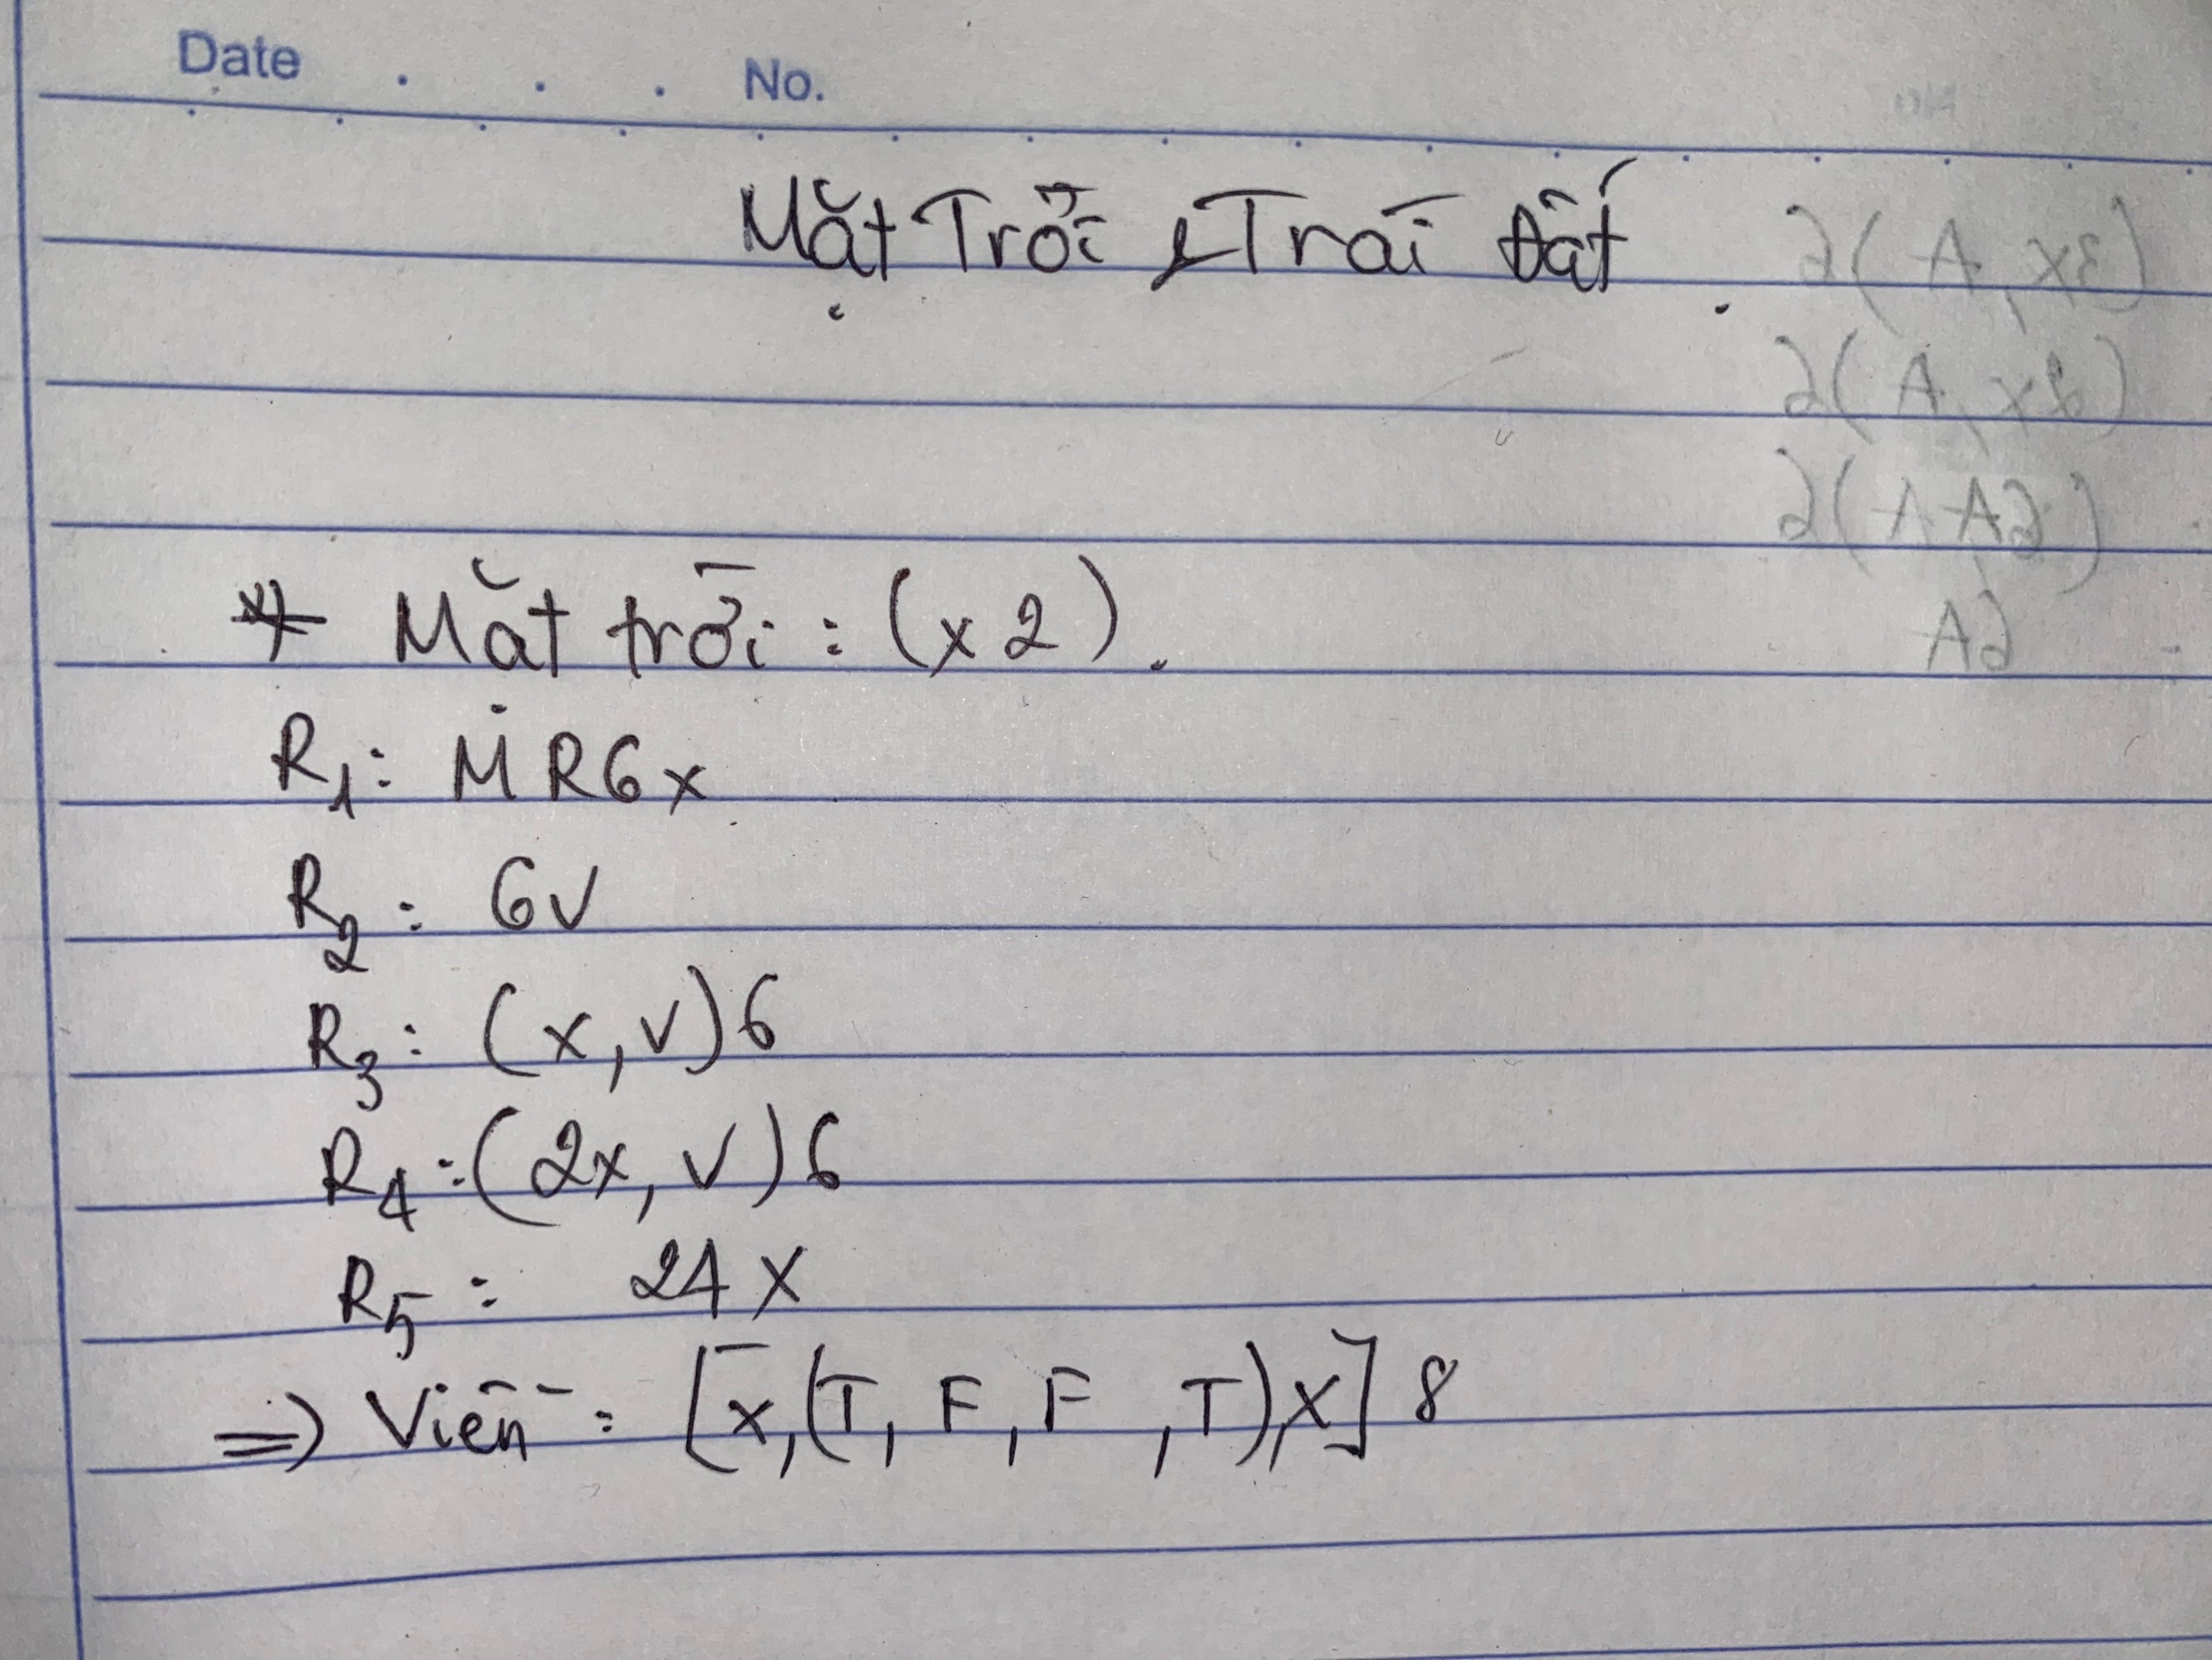 Date . . . No.
Mặt Trời & Trái Đất.
* Mặt trời : (x2).
R1: MR6x
R2: 6V
R3: (x,v)6
R4: (2x,v)6
R5: 24x
=> Viền: [x,(T,F,F,T),x] 8